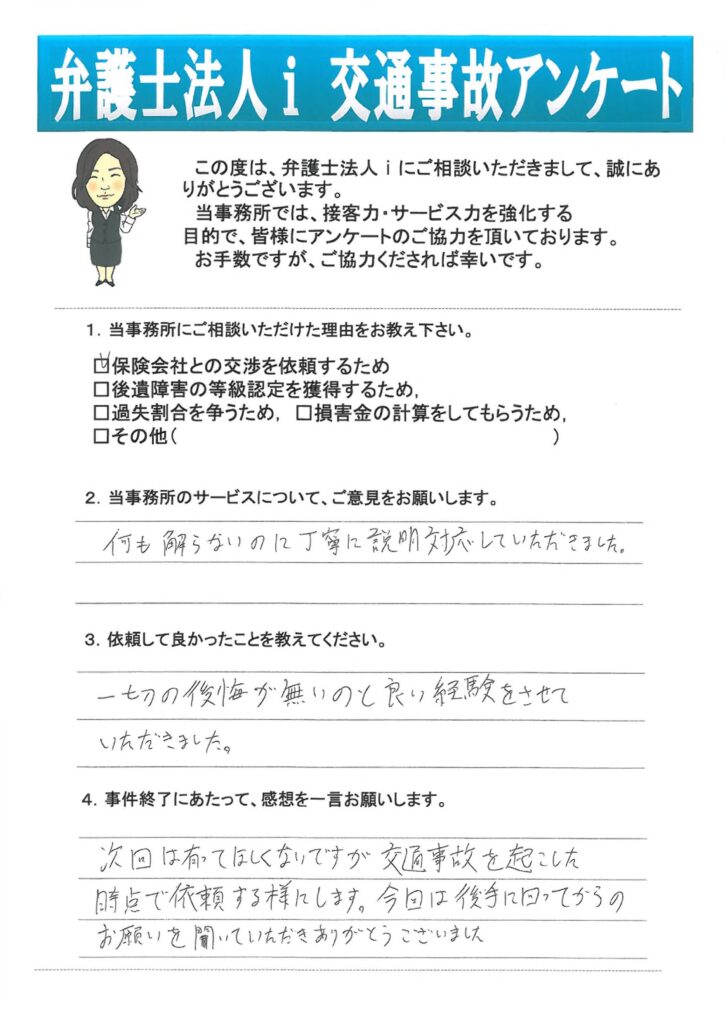 弁護士法人ｉ 交通事故アンケート
この度は、弁護士法人ｉにご相談いただきまして、誠にあ
りがとうございます。
当事務所では、接客力・サービス力を強化する
目的で、皆様にアンケートのご協力を頂いております。
お手数ですが、ご協力くだされば幸いです。
１．当事務所にご相談いただけた理由をお教え下さい。
☑保険会社との交渉を依頼するため
□後遺障害の等級認定を獲得するため，
□過失割合を争うため， □損害金の計算をしてもらうため，
□その他（ ）
２．当事務所のサービスについて、ご意見をお願いします。
何も解らないのに丁寧に説明対応していただきました。
３．依頼して良かったことを教えてください。
一切の後悔が無いのと良い経験をさせて
いただきました。
４．事件終了にあたって、感想を一言お願いします。
次回は有ってほしくないですが交通事故を起こした
時点で依頼する様にします。今回は後手に回ってからの
お願いを聞いていただきありがとうございました